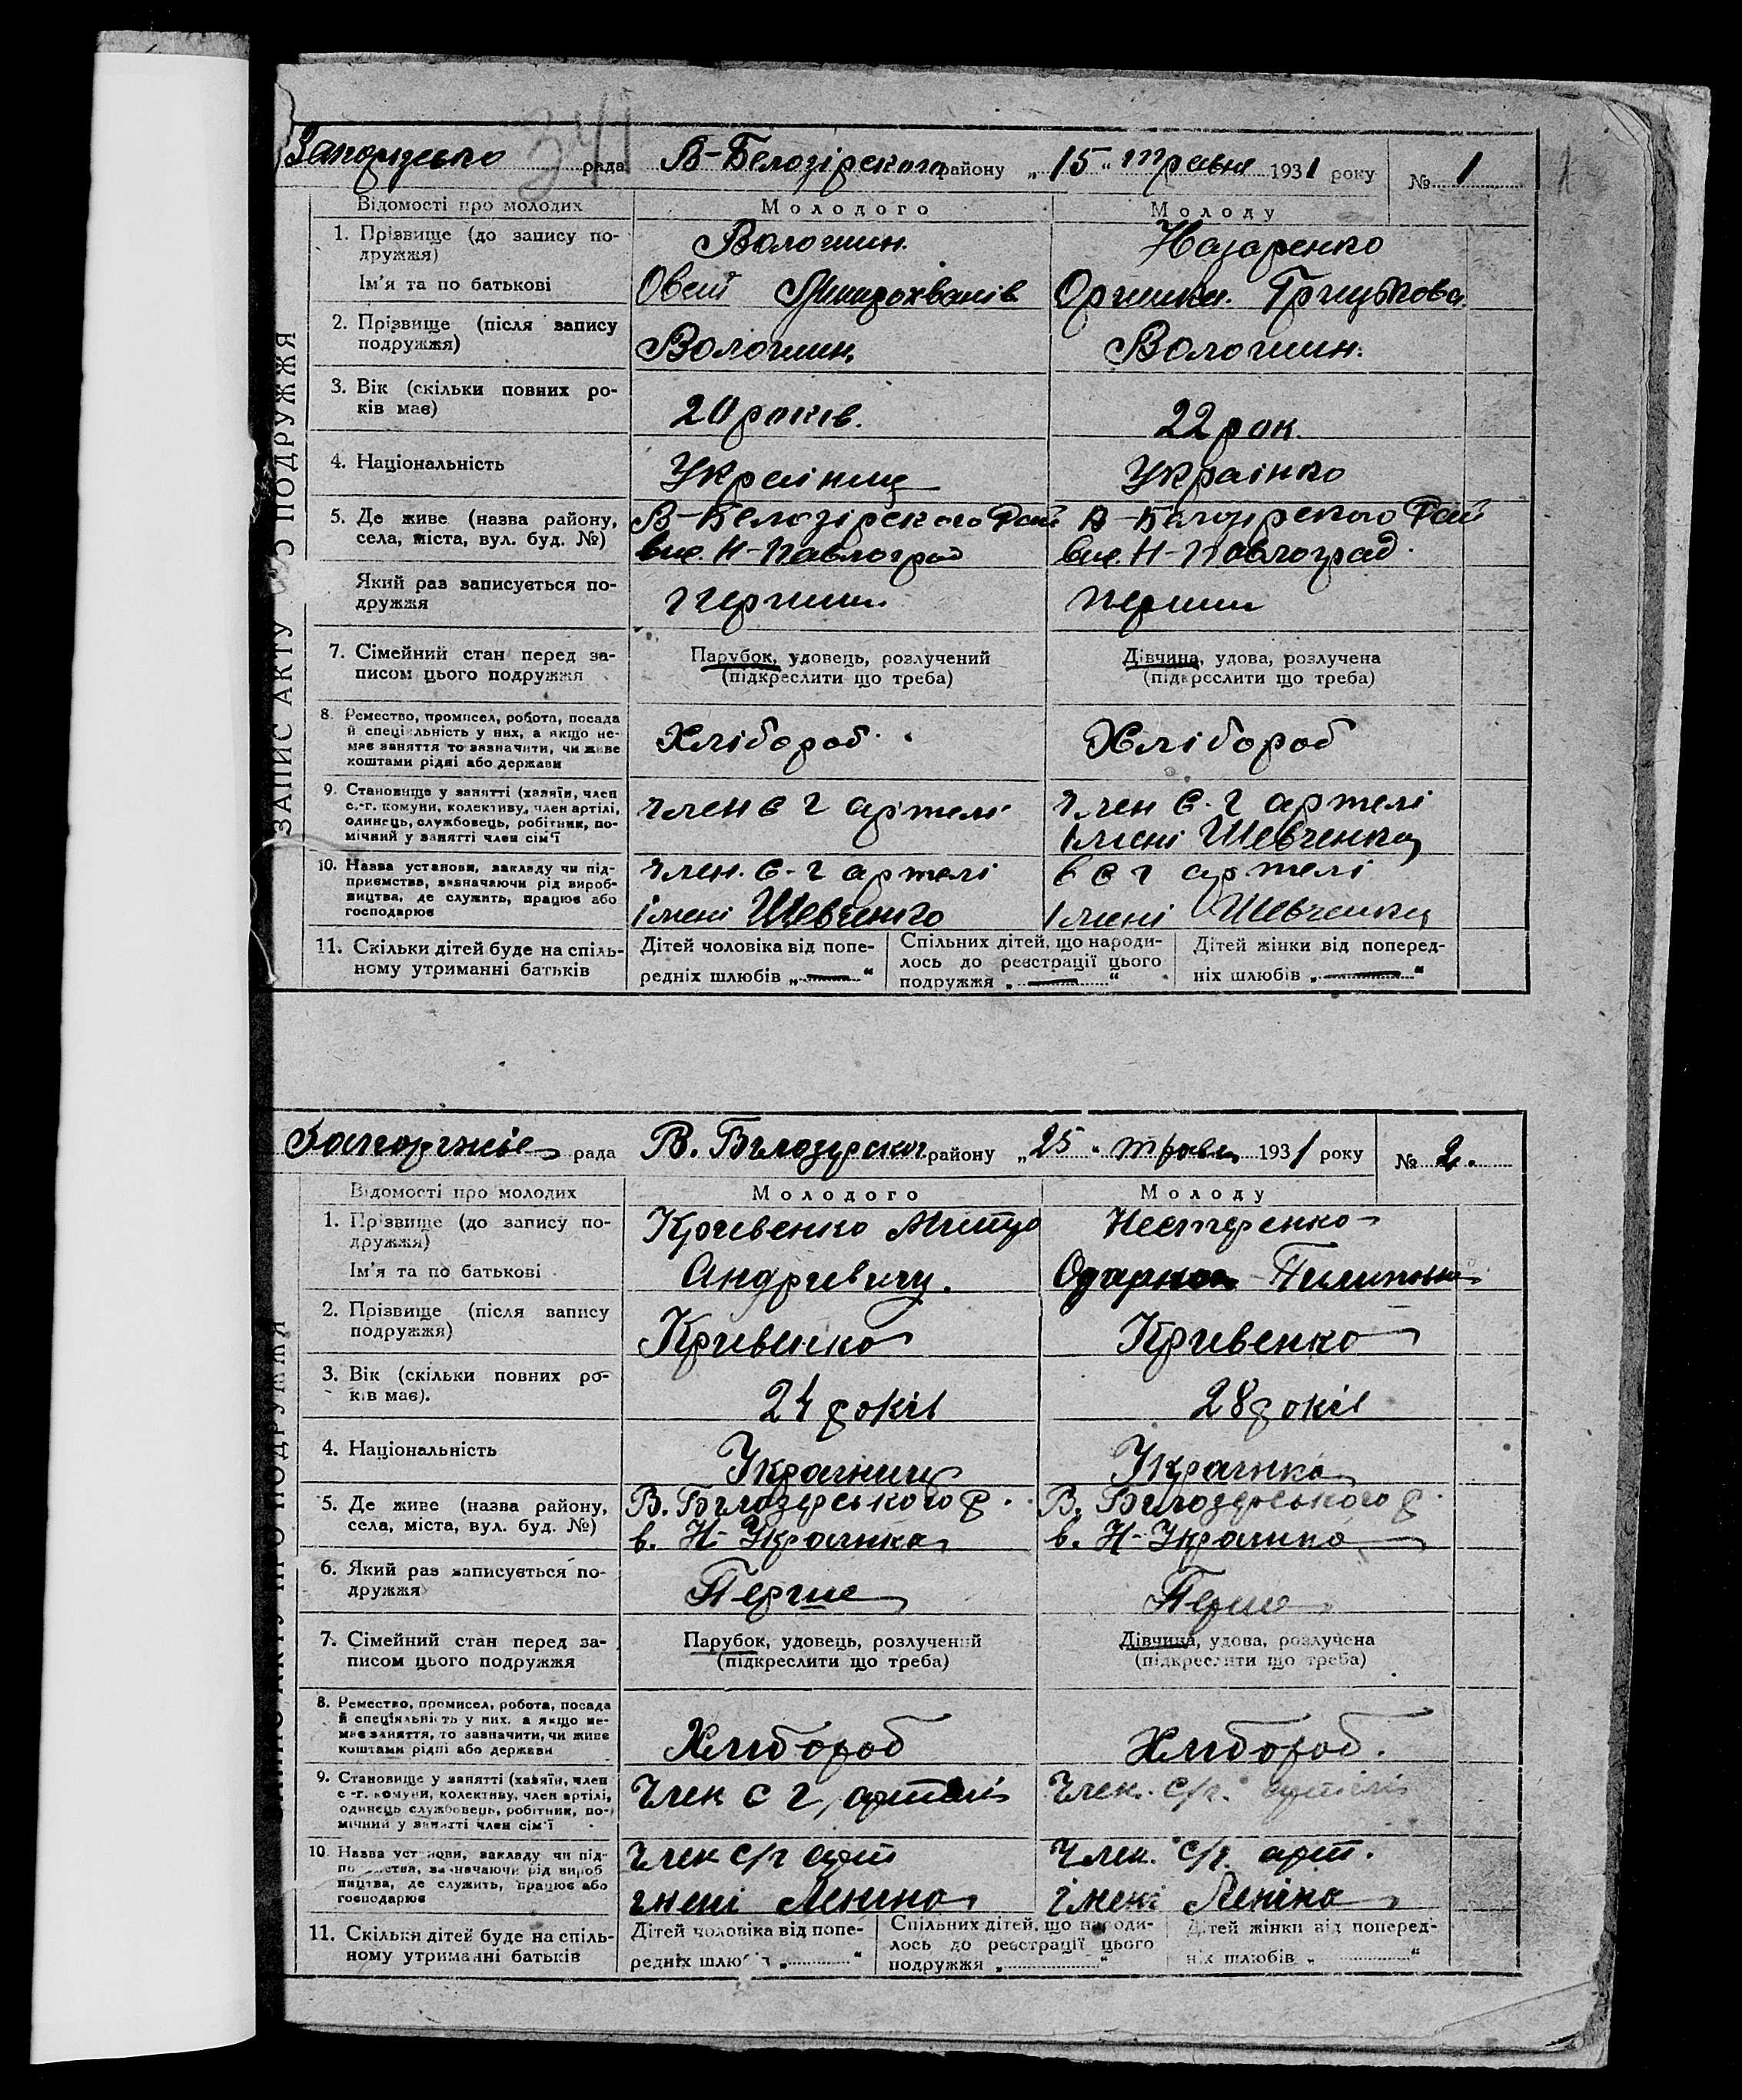 341
Запорізька рада В-Белозірского району „15" травня 1931 року № 1
1
ЗАПИС АКТУ ПРО ПОДРУЖЖЯ
Відомості про молодих Молодого Молоду
1. Прізвище (до запису по-
дружжя)
Волошин. Назаренко
Ім'я та по батькові
Овсій Оришка. Грицькова
2. Прізвище (після запису
подружжя)
Волошин Волошин.
3. Вік (скільки повних ро-
ків має)
20 років. 22 рок.
4. Національність
Українец Українко
5. Де живе (назва району,
села, міста, вул. буд. №)
В-Белозірского Рай В-Белозірского Рай
вис. Н-Павлоград вис. Н-Павлоград.
Який раз записується по-
дружжя
перший перший
7. Сімейний стан перед за-
писом цього подружжя
Парубок, удовець, розлучений
(підкреслити що треба)
Дівчина, удова, розлучена
(підкреслити що треба)
8. Ремество, промисел, робота, посада
й спеціяльність у них, а якщо не-
має заняття то зазначити, чи живе
коштами рідні або держави
Хлібороб Хлібороб
9. Становище у занятті (хазяїн, член
с.-г. комуни, колективу, член артілі,
одинець, службовець, робітник, по-
мічний у занятті член сім'ї
член с г артелі член с. г артелі
імені Шевченка
10. Назва установи, закладу чи під-
приємства, зазначаючи рід вироб-
ництва, де служить, працює або
господарює
член. с-г артелі в с г артелі
імені Шевченко імені Шевченка
11. Скільки дітей буде на спіль-
ному утриманні батьків
Дітей чоловіка від попе-
редніх шлюбів „ — "
Спільних дітей, що народи-
лось до реєстрації цього
подружжя „ — "
Дітей жінки від поперед-
ніх шлюбів „ — "
рада В. Білозерског району „25" травн 1931 року № 2.
ЗАПИС АКТУ ПРО ПОДРУЖЖЯ
Відомості про молодих Молодого Молоду
1. Прізвище (до запису по-
дружжя)
Кривенко Нестеренко
Ім'я та по батькові
Андрієвичу. Одарка
2. Прізвище (після запису
подружжя)
Кривенко Кривенко
3. Вік (скільки повних ро-
ків має).
24 років 28 років
4. Національність
Україниц Українка
5. Де живе (назва району,
села, міста, вул. буд. №)
В. Білозерського р. В. Білозерського р.
в. Н-Українка в. Н-Українка
6. Який раз записується по-
дружжя
Перше Перше
7. Сімейний стан перед за-
писом цього подружжя
Парубок, удовець, розлучений
(підкреслити що треба)
Дівчина, удова, розлучена
(підкреслити що треба)
8. Ремество, промисел, робота, посада
й спеціяльність у них, а якщо не-
має заняття, то зазначити, чи живе
коштами рідні або держави
Хлібороб Хлібороб.
9. Становище у занятті (хазяїн, член
с-г. комуни, колективу, член артілі,
одинець службовець, робітник, по-
мічний у занятті член сім'ї
Член с г, артілі Член. с/г. артілі
10. Назва установи, закладу чи під-
приємства, зазначаючи рід вироб
ництва, де служить, працює або
господарює
Член с/г арт Член. с/г. арт.
імені Леніна імені Леніна
11. Скільки дітей буде на спіль-
ному утриманні батьків
Дітей чоловіка від попе-
редніх шлюбів „ "
Спільних дітей, що народи-
лось до реєстрації цього
подружжя „ "
Дітей жінки від поперед-
ніх шлюбів „ "